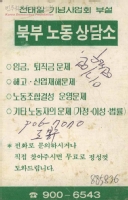 전태일 기념사업회 부설
북부노동상담소
○임금, 퇴직금 문제
○해고·산업재해문제
○노동조합결성 운영문제
○기타노동자의 문제 (가정·여성·법률)
※ 전화로 문의하시거나
직접 찾아주시면 무료로 정성껏
도와드립니다.
☎ 900-6543